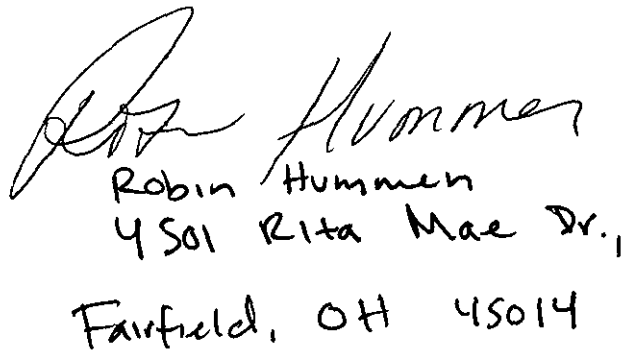 Robin Hummen
Robin Hummen
4501 Rita Mae Dr.,
Fairfield, OH 45014